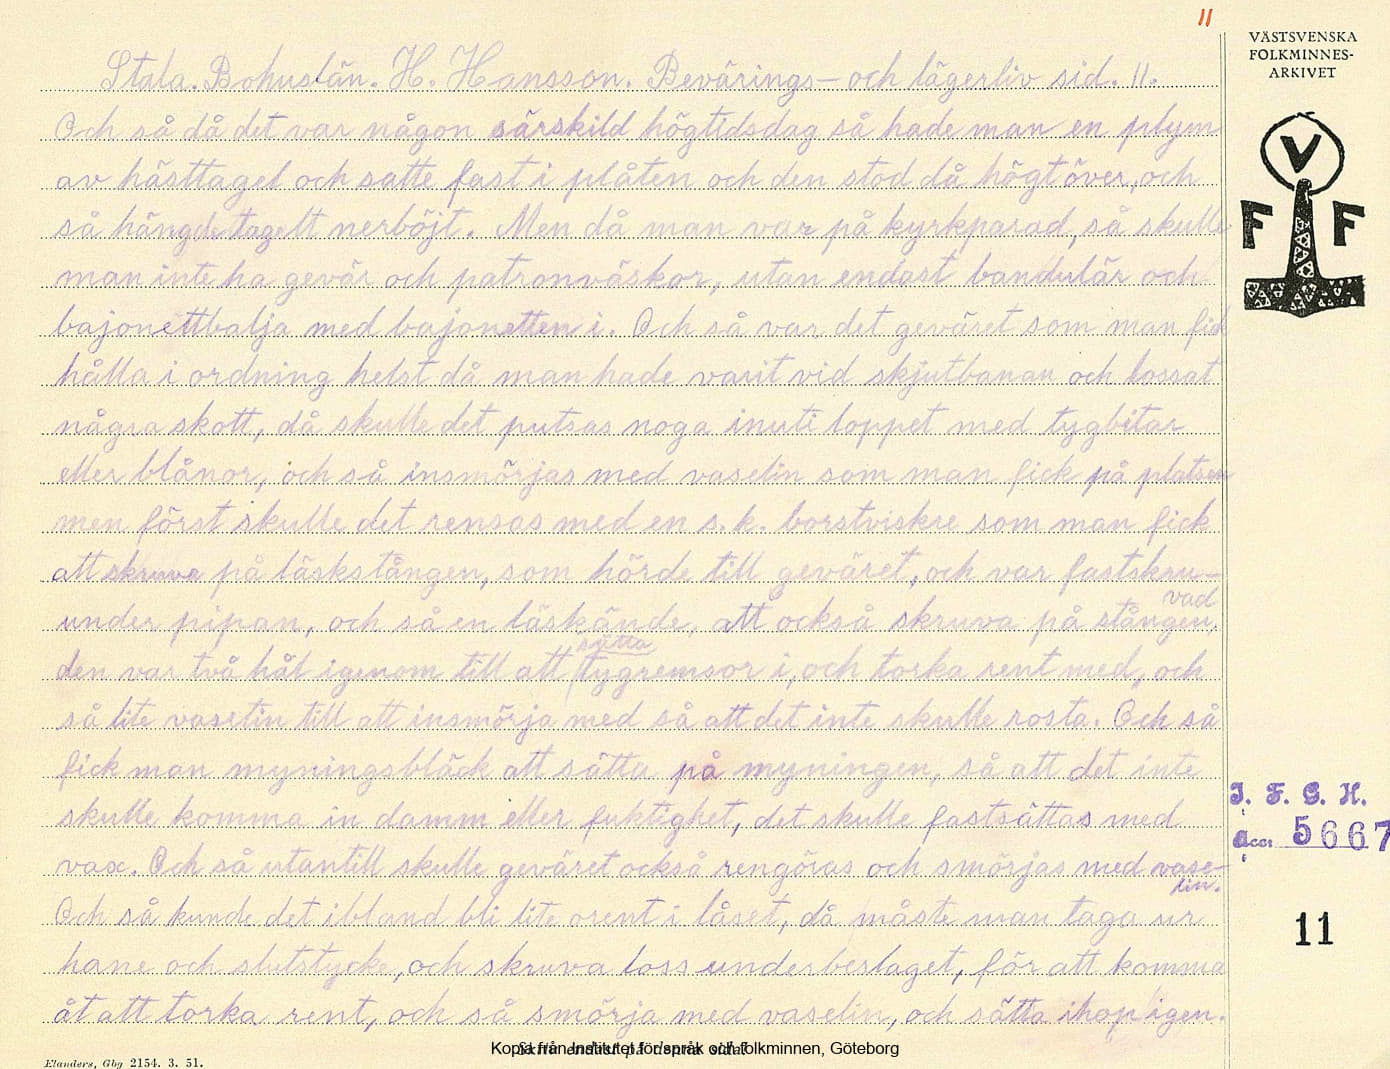 11
VÄSTSVENSKA
FOLKMINNES-
ARKIVET
V
F F
Stala. Bohuslän. H. Hansson. Bevärings- och lägerliv sid. 11.
Och så då det var någon särskild högtidsdag så hade man en plym
av hästtagel och satte fast i plåten och den stod då högt över, och
så hängde tagelt nerböjt. Men då man var på kyrkparad, så skulle
man inte ha gevär och patronväskor, utan endast bandulär och
bajonettbalja med bajonetten i. Och så var det geväret som man fick
hålla i ordning helst då man hade varit vid skjutbanan och lossat
några skott, då skulle det putsas noga inuti loppet med tygbitar
eller blånor, och så insmörjas med vaselin som man fick på platsen
men först skulle det rensas med en s.k. borstviskre som man fick
att skruva på läskstången, som hörde till geväret, och var fastskru-
vad
under pipan, och så en läskände, att också skruva på stången,
sätta
den var två hål igenom till att tygremsor i, och torka rent med, och
så lite vaselin till att insmörja med så att det inte skulle rosta. Och så
fick man myningsbläck att sätta på myningen, så att det inte
skulle komma in damm eller fuktighet, det skulle fastsättas med
vax. Och så utantill skulle geväret också rengöras och smörjas med vase-
lin.
Och så kunde det ibland bli lite orent i låset, då måste man taga ur
hane och slutstycke, och skruva loss underbeslaget, för att komma
åt att torka rent, och så smörja med vaselin, och sätta ihop igen.
I. F. G. H.
acc: 5667
11
Skriv endast på denna sida!
Kopia från Institutet för språk och folkminnen, Göteborg
Elanders, Gbg 2154. 3. 51.